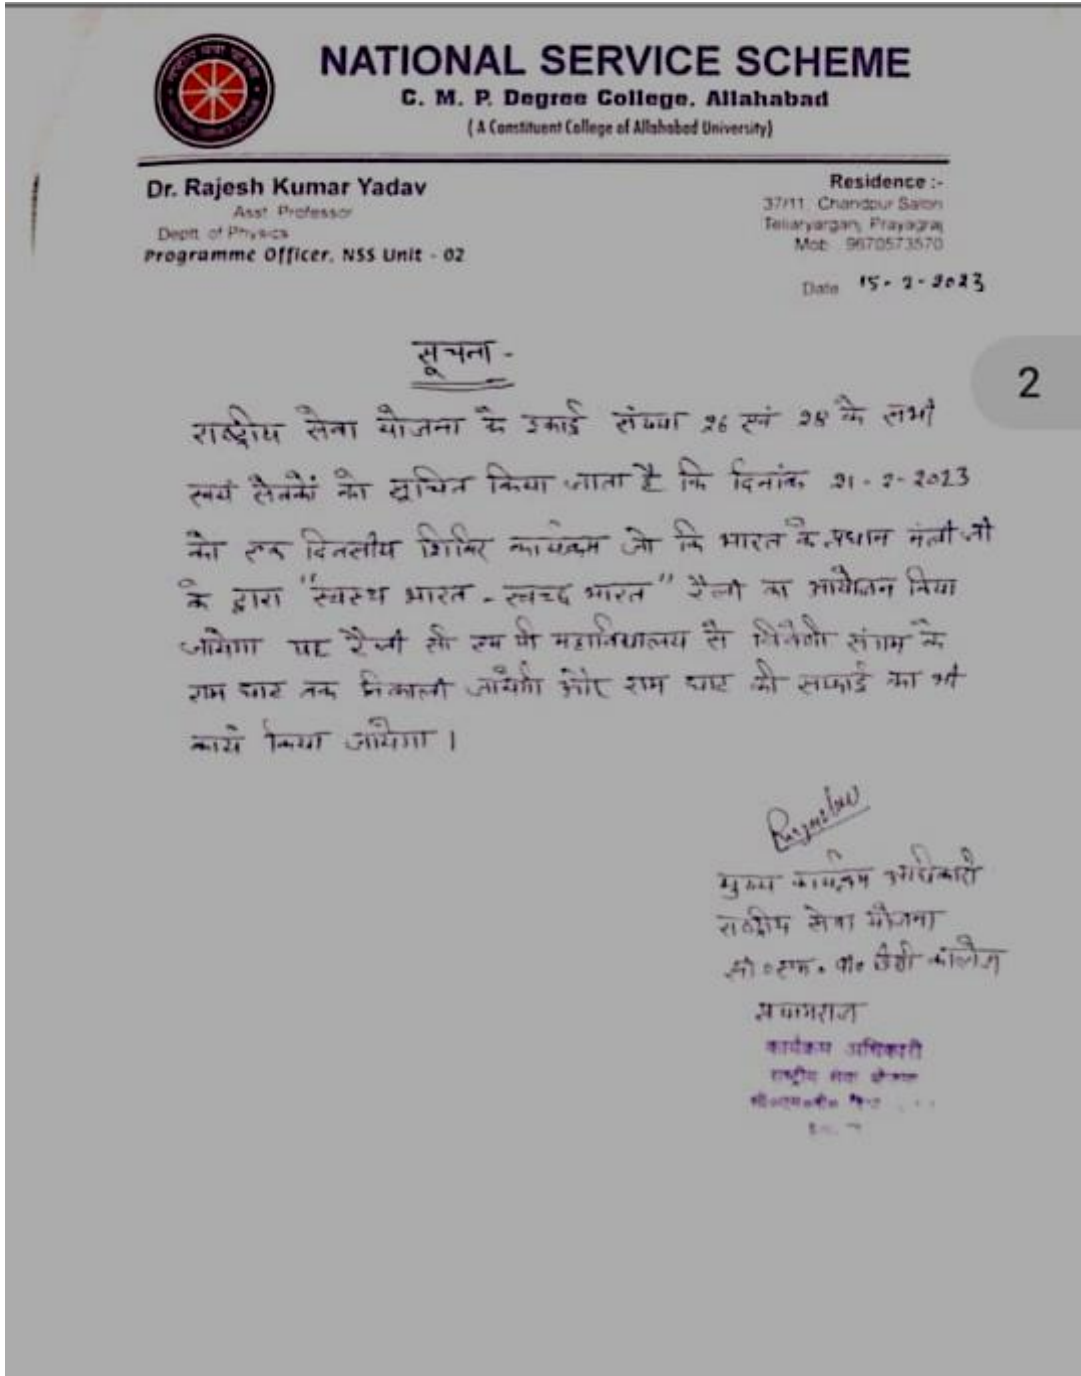 NATIONAL SERVICE SCHEME
C. M. P. Degree College, Allahabad
(A Constituent College of Allahabad University)
Dr. Rajesh Kumar Yadav
Asst. Professor
Deptt. of Physics
Programme Officer, NSS Unit - 02
Residence :-
37/11, Chandpur Salori
Teliaryarganj, Prayagraj
Mob: 9670573570
Date 15-2-2023
2
सूचना -
राष्ट्रीय सेवा योजना के इकाई संख्या 26 एवं 28 के सभी
स्वयं सेवकों को सूचित किया जाता है कि दिनांक 21-2-2023
को एक दिवसीय शिविर कार्यक्रम जो कि भारत के प्रधान मंत्री जी
के द्वारा "स्वस्थ भारत - स्वच्छ भारत" रैली का आयोजन किया
जायेगा यह रैली सी एम पी महाविद्यालय से त्रिवेणी संगम के
राम घाट तक निकाली जायेगी और राम घाट की सफाई का भी
कार्य किया जायेगा।
मुख्य कार्यक्रम अधिकारी
राष्ट्रीय सेवा योजना
सी०एम०पी० डिग्री कॉलेज
प्रयागराज
कार्यक्रम अधिकारी
राष्ट्रीय सेवा योजना
सी०एम०पी०